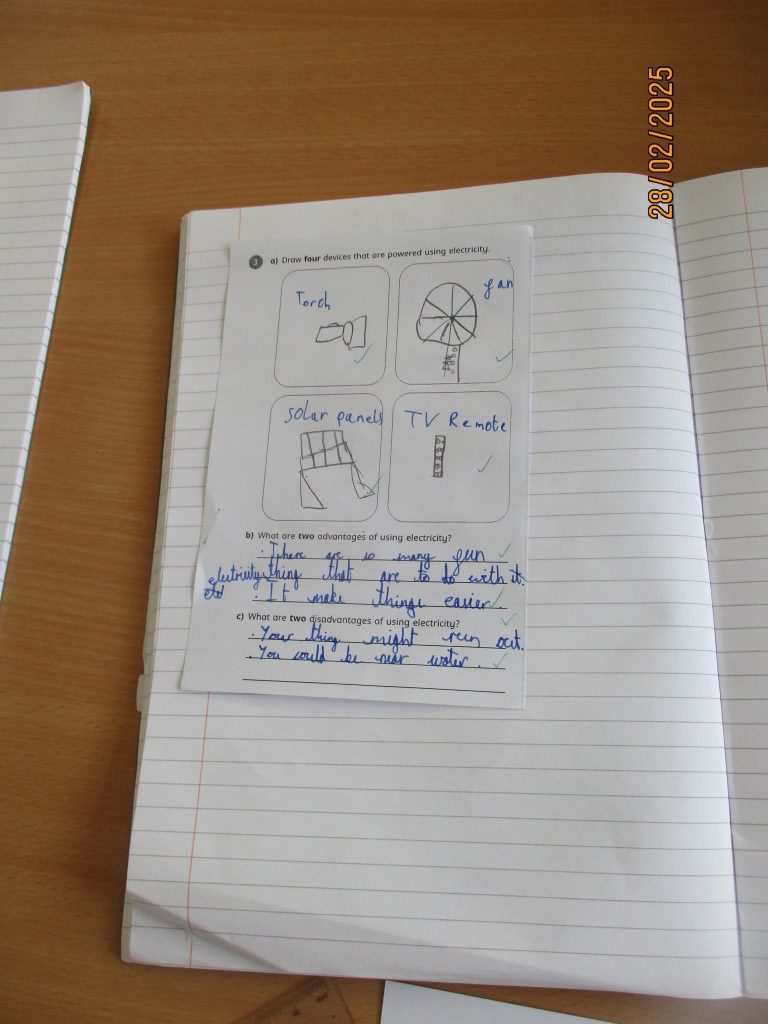 28/02/2025
3 a) Draw four devices that are powered using electricity.
Torch
fan
Solar panels
TV Remote
b) What are two advantages of using electricity?
. There are so many fun
electricity thing that are to do with it.
. It make things easier.
c) What are two disadvantages of using electricity?
. Your thing might run out.
. You could be near water.